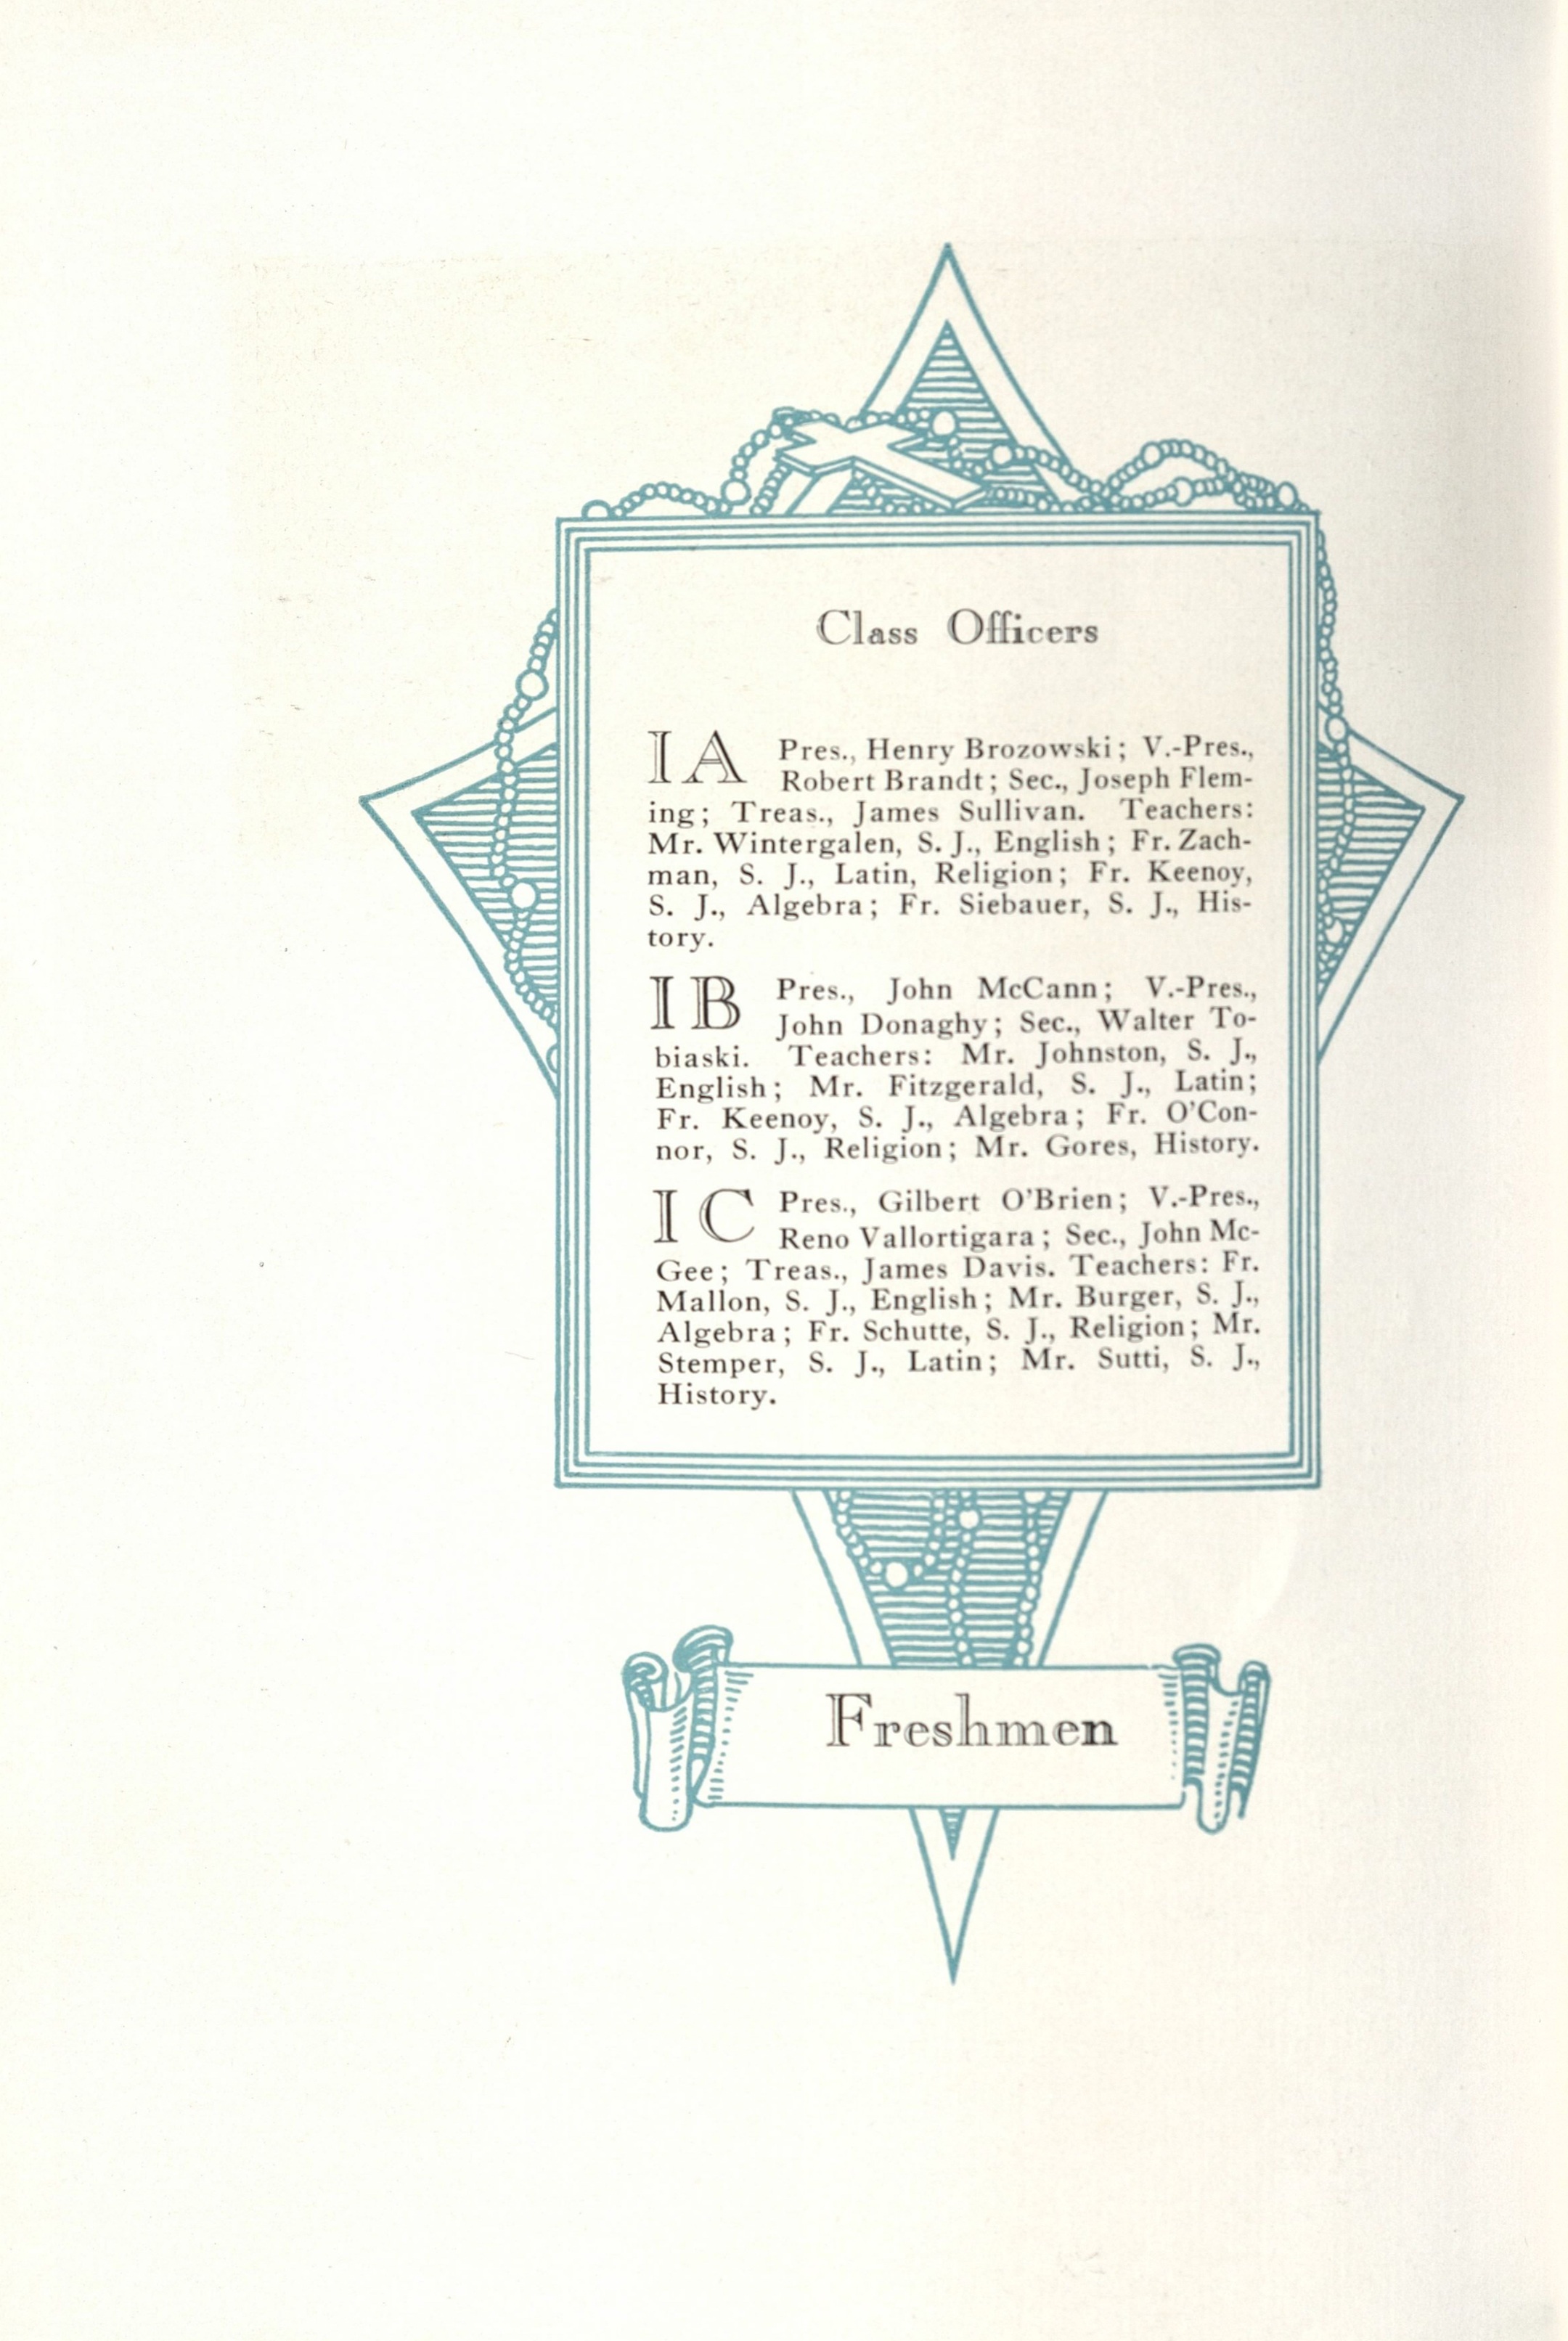 Class Officers
I A Pres., Henry Brozowski; V.-Pres.,
Robert Brandt; Sec., Joseph Flem-
ing; Treas., James Sullivan. Teachers:
Mr. Wintergalen, S. J., English; Fr. Zach-
man, S. J., Latin, Religion; Fr. Keenoy,
S. J., Algebra; Fr. Siebauer, S. J., His-
tory.
I B Pres., John McCann; V.-Pres.,
John Donaghy; Sec., Walter To-
biaski. Teachers: Mr. Johnston, S. J.,
English; Mr. Fitzgerald, S. J., Latin;
Fr. Keenoy, S. J., Algebra; Fr. O'Con-
nor, S. J., Religion; Mr. Gores, History.
I C Pres., Gilbert O'Brien; V.-Pres.,
Reno Vallortigara; Sec., John Mc-
Gee; Treas., James Davis. Teachers: Fr.
Mallon, S. J., English; Mr. Burger, S. J.,
Algebra; Fr. Schutte, S. J., Religion; Mr.
Stemper, S. J., Latin; Mr. Sutti, S. J.,
History.
Freshmen